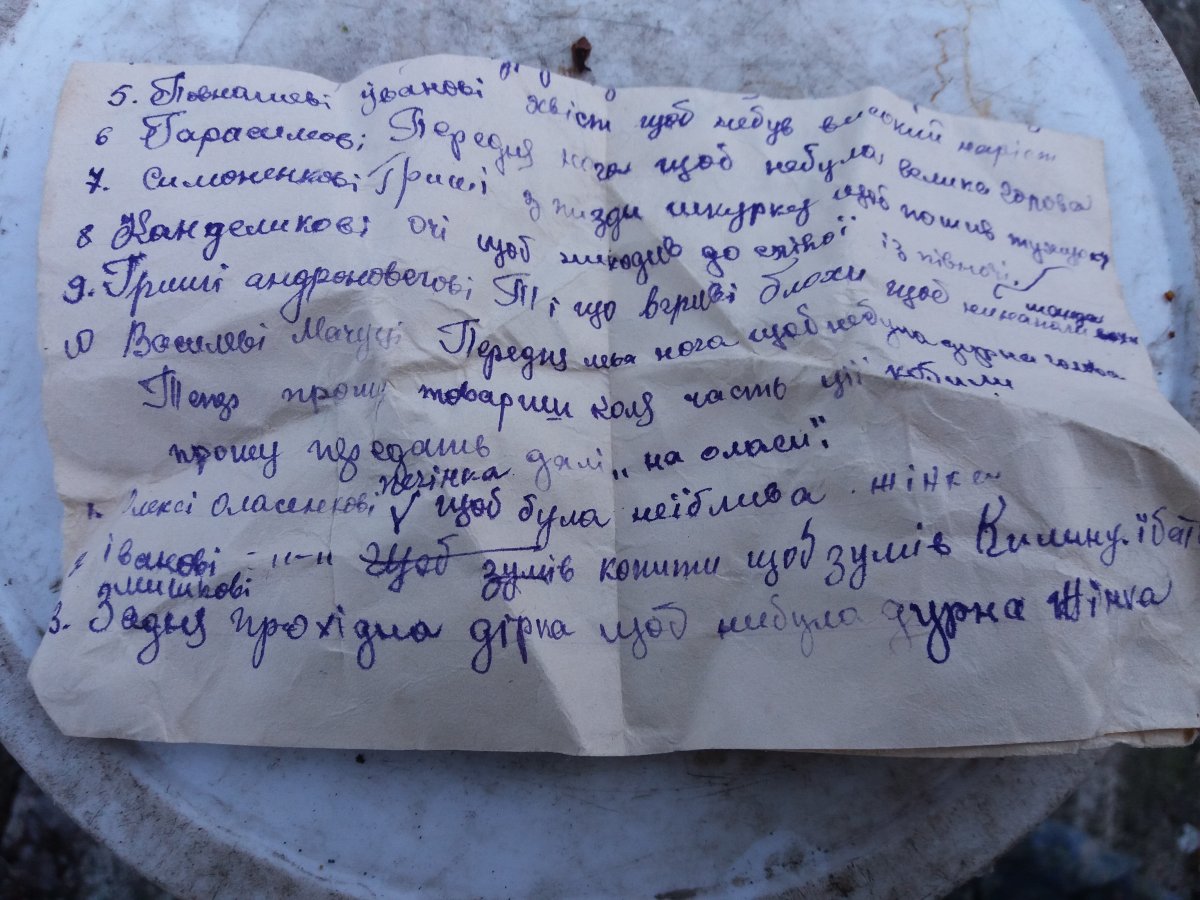 5. Повнашеві ўванові хвіст щоб небув високий наріст
6 Гарасимові Передня нога щоб небула велика горова
7. Симоненкові Гриші з пизди шкурку щоб пошив тужурку
8 Канделикові очі щоб ниходив до сліпої із півночі
9. Гриші андроновегові Ті що вгриві блохи щоб
10 Василеві Мачуці Передня ліва нога щоб небула дурна голова
Тепер прошу товариш коля часть ції кобили
прошу передать далі „на оласи".
печінка
лексі оласенкові щоб була неїблива жінка
івакові -"-" Щоб зумів копити щоб зумів Килину їбат
дмишкові
3. Задня прохідна дірка щоб небула дурна жінка